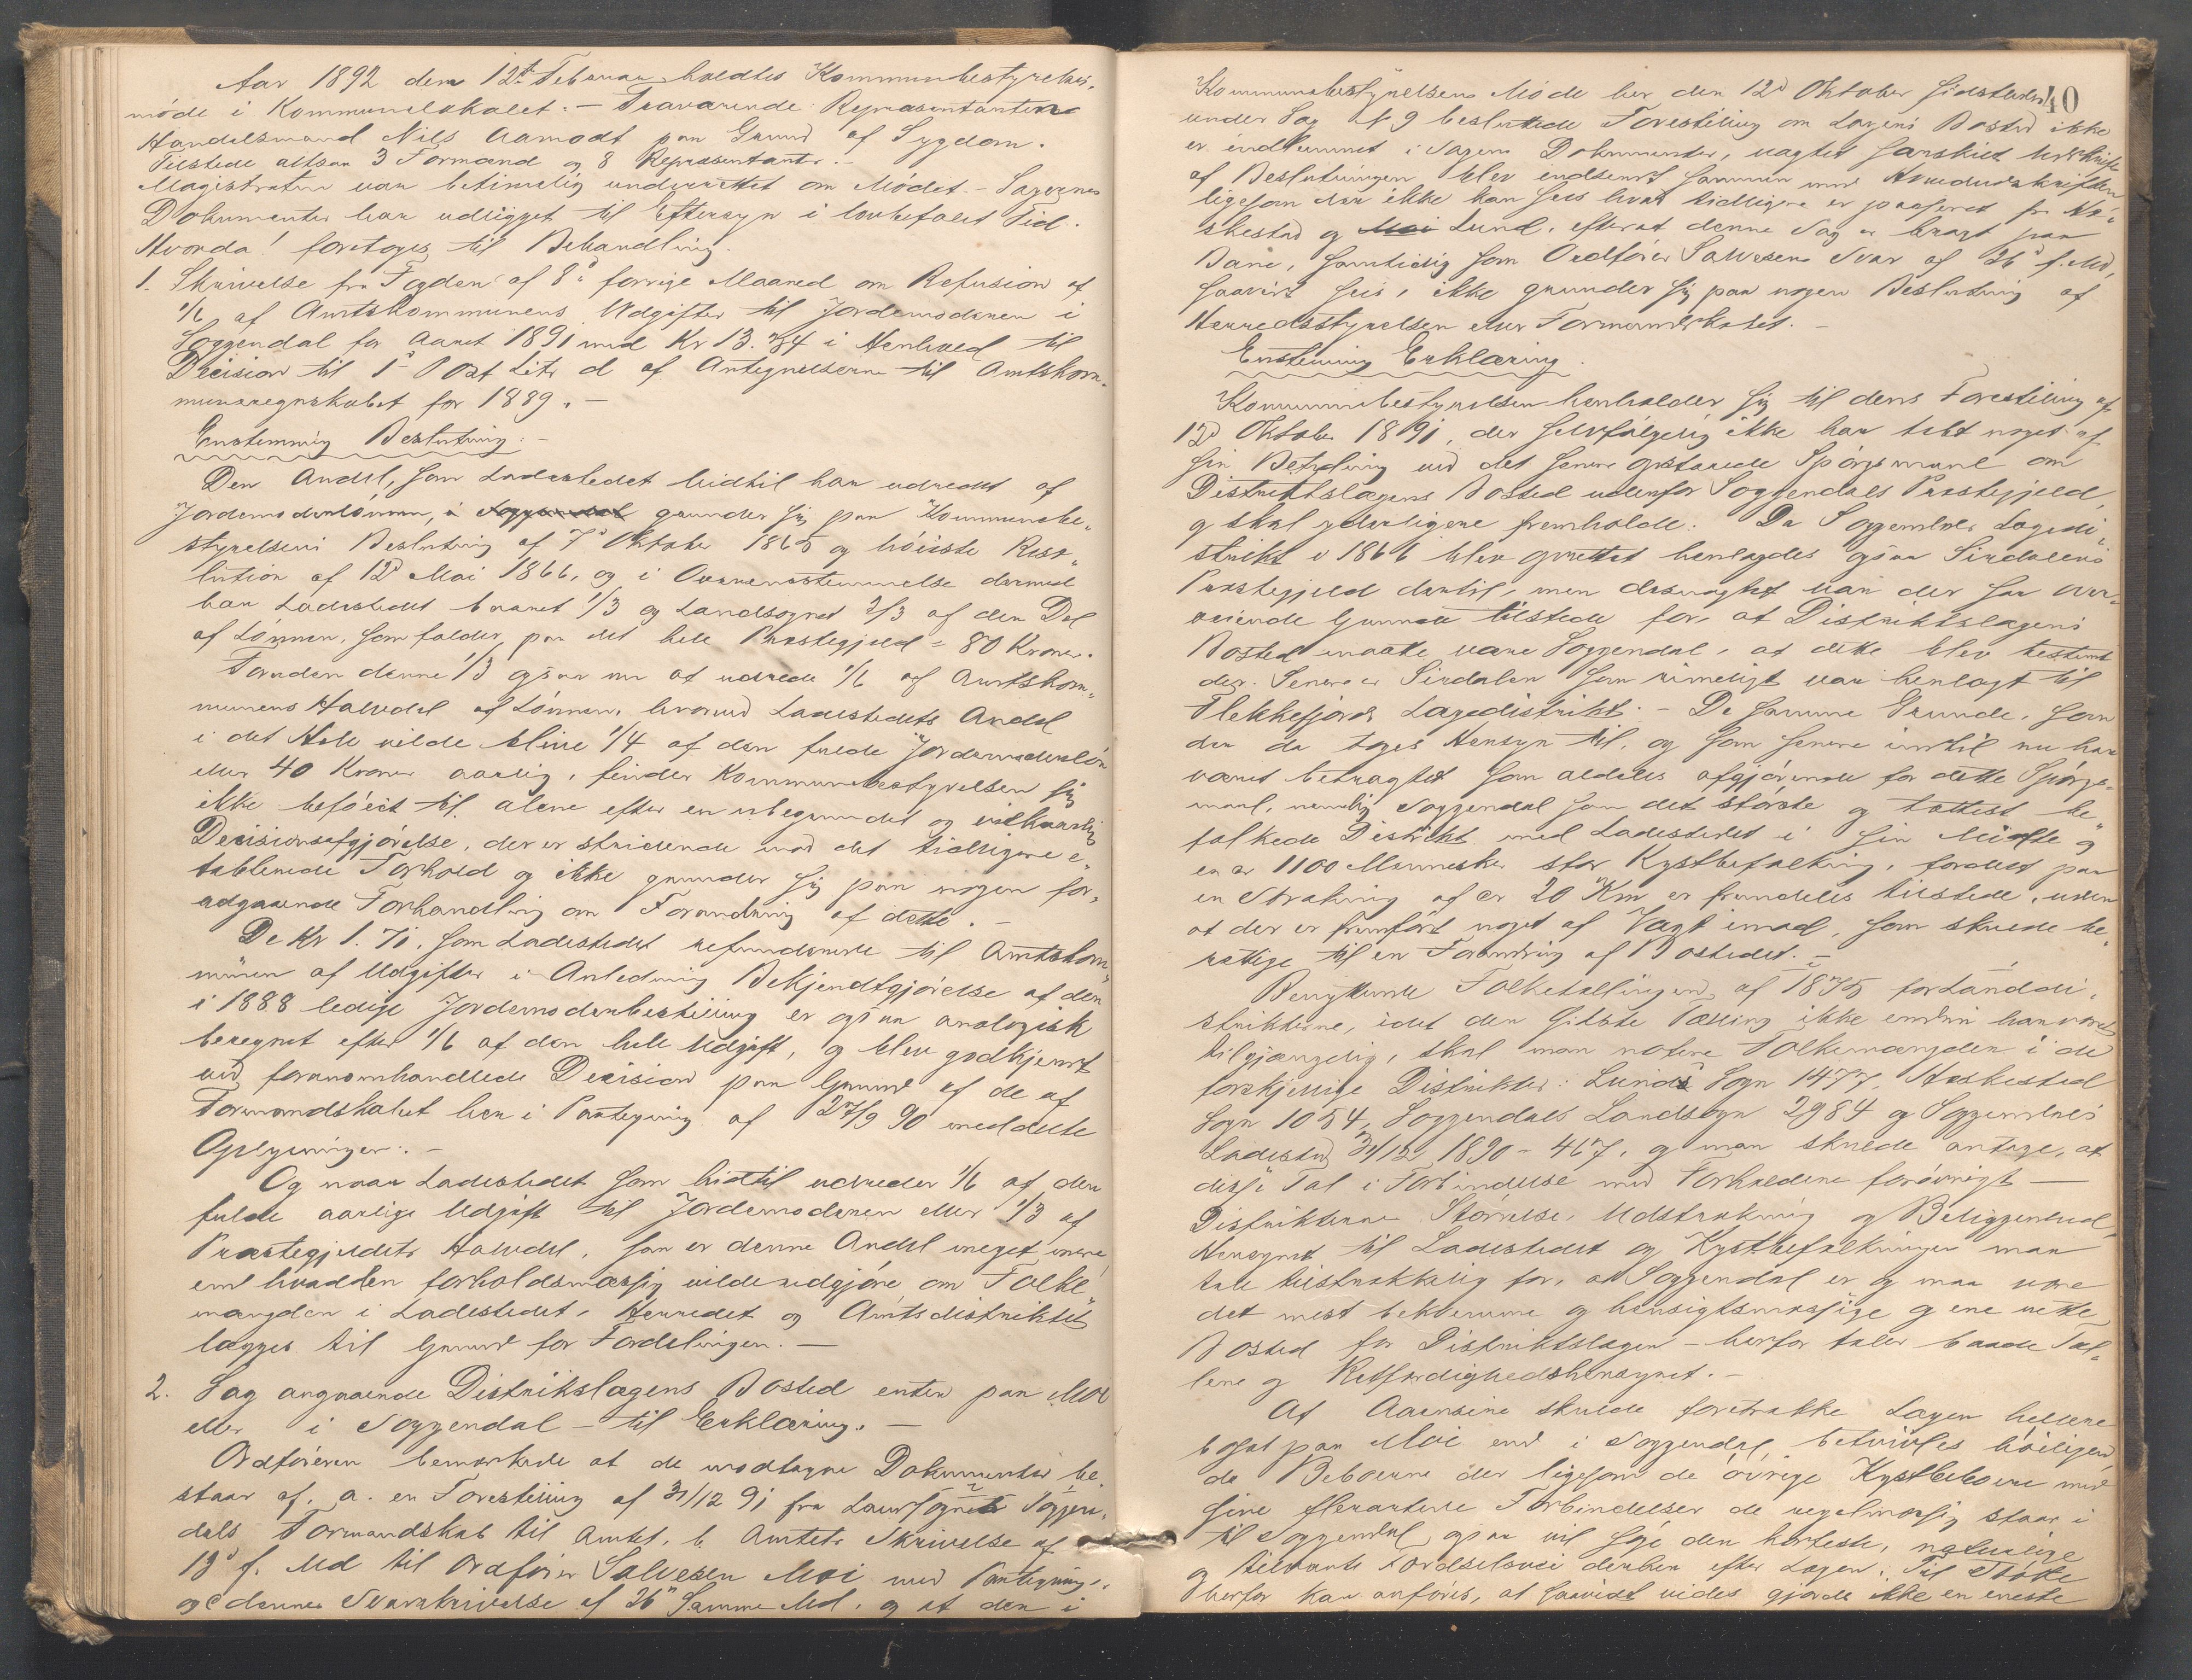 Aar 1892 den 12te Februar holdtes Kommunebestyrelses-
møde i Kommunelokalet. – Fraværende Repræsentanterne
Handelsmand Nils Aamodt paa Grund af Sygdom.
Tilstede altsaa 3 Formænd og 8 Repræsentanter. –
Magistraten var betimelig underrettet om Mødet. – Sagernes
Dokumenter har udligget til Eftersyn i lovbefalet Tid.
Hvorda! foretoges til Behandling.
1. Skrivelse fra Fogden af 8de forrige Maaned om Refusion af
1/6 af Amtskommunens Udgifter til Jordemoderen i
Soggendal for Aaret 1891 med Kr 13.34 i Henhold til
Decision til 1ste Post Litr d af Antegnelserne til Amtskom-
muneregnskabet for 1889. –
Enstemmig Beslutning: –
Den Andel, som Ladestedet hidtil har udredet af
Jordemoderlønnen, i Soggendal grunder sig paa Kommunebe-
styrelsens Beslutning af 7de Oktober 1865 og høieste Reso-
lution af 12te Mai 1866, og i Overensstemmelse dermed
har Ladestedet baaret 1/3 og Landsognet 2/3 af den Del
af Lønnen, som falder paa det hele Præstegjeld = 80 Kroner.
Foruden denne 1/3 ogsaa nu at udrede 1/6 af Amtskom-
munens Halvdel af Lønnen, hvorved Ladestedets Andel
i det Hele vilde blive 1/4 af den fulde Jordemoderløn
eller 40 Kroner aarlig, finder Kommunebestyrelsen sig
ikke beføiet til, alene efter en ubegrundet og vilkaarlig
Decisionsafgjørelse, der er stridende mod det tidligere e-
tablerede Forhold og ikke grunder sig paa nogen for-
udgaaende Forhandling om Forandring af dette. –
De Kr 1.71, som Ladestedet refunderede til Amtskom-
munen af Udgifter i Anledning Bekjendtgjørelse af den
i 1888 ledige Jordemoderbestilling er ogsaa analogisk
beregnet efter 1/6 af den hele Udgift, og blev godkjendt
ved foranomhandlede Decision paa Grund af de af
Formandskabet her i Paategning af 27/9 90 meddelte
Oplysninger. –
Og naar Ladestedet som hidtil udreder 1/6 af den
fulde aarlige Udgift til Jordemoderen eller 1/3 af
Præstegjeldets Halvdel, saa er denne Andel meget mere
end hvad den forholdsmæssig vilde udgjøre om Folke-
mængden i Ladestedet, Herredet og Amtsdistriktet
lægges til Grund for Fordelingen. –
2. Sag angaaende Distrikslægens Bosted enten paa Moi
eller i Soggendal – til Erklæring. –
Ordføreren bemærkede at de modtagne Dokumenter be-
staar af, a. en Forestilling af 31/12 91 fra Landsognets Soggen-
dals Formandskab til Amtet, b. Amtets Skrivelse af
19de f. Md til Ordfører Salvesen Moi med Paategning,
og c dennes Svarskrivelse af 26de Samme Md. og at den i
40
Kommunebestyrelsens Møde her den 12te Oktober sidstleden
under Sag No 9 besluttede Forestilling om Lægens Bosted ikke
er indlemmet i Sagens Dokumenter, uagtet særskilt Udskrift
af Beslutningen blev indsendt sammen med Hovedudskriften,
ligesom der ikke kan sees hvad tidligere er passeret fra He-
skestad og Moi Lund, efterat denne Sag er bragt paa
Bane, samtidig som Ordfører Salvesens Svar af 26de f. Md,
saavidt sees, ikke grunder sig paa nogen Beslutning af
Herredsstyrelsen eller Formandskabet. –
Enstemmig Erklæring.
Kommunebestyrelsen henholder sig til dens Forestilling af
12te Oktober 1891, der selvfølgelig ikke har tabt noget af
sin Betydning ved det senere opstaaede Spørgsmaal om
Distriktslægens Bosted udenfor Soggendals Præstegjeld,
og skal yderligere fremholde: Da Soggendals Lægedi-
strikt i 1866 blev oprettet henlagdes ogsaa Sirdalens
Præstegjeld dertil, men desuagtet var der saa over-
veiende Grunde tilstede for, at Distriktslægens
Bosted maatte være Soggendal, at dette blev bestemt
der. Senere er Sirdalen som rimeligt var henlagt til
Flekkefjords Lægedistrikt. – De samme Grunde, som
der da toges Hensyn til, og som senere indtil nu har
været betragtet som aldeles afgjørende for dette Spørgs-
maal, nemlig Soggendal som det største og tættest be-
folkede Distrikt med Ladestedet i sin Midte og
en ca 1100 Mennesker stor Kystbefolkning, fordelt paa
en Strækning af ca 20 Km er fremdeles tilstede, uden
at der er fremført noget af Vægt imod, som skulde be-
rettige til en Forandring af Bostedet. –
Benyttende Folketællingen af 1875 for Landdi-
strikterne, idet den sidste Tælling ikke endnu har været
tilgjængelig, skal man notere Folkemængden i de
forskjellige Distrikter: Lunds Sogn 1477, Heskested
Sogn 1054, Soggendals Landsogn 2984 og Soggendals
Ladested 31/12 1890 – 467, og man skulde antage, at
disse Tal i Forbindelse med Forholdene forøvrigt –
Distrikternes Størrelse, Udstrækning og Beliggenhed,
Hensynet til Ladestedet og Kystbefolkningen maa
tale tilstrækkelig for, at Soggendal er og maa være
det mest bekvemme og hensigtsmæssige og ene rette
Bosted for Distriktslægen – herfor taler baade Tal-
lene og Retfærdighedshensynet. –
At Aaensire skulde foretrække Lægen hellere
bosat paa Moi end i Soggendal, betvivles høiligen
da Beboerne der ligesom de øvrige Kystbeboere med
sine Forbindelser de regelmæssig staar i
til Soggendal, ogsaa vil søge den korteste, naturlige
og tilvante Færdselsvei derhen efter Lægen. Til Støtte
herfor kan anføres, at saavidt vides gjorde ikke en eneste